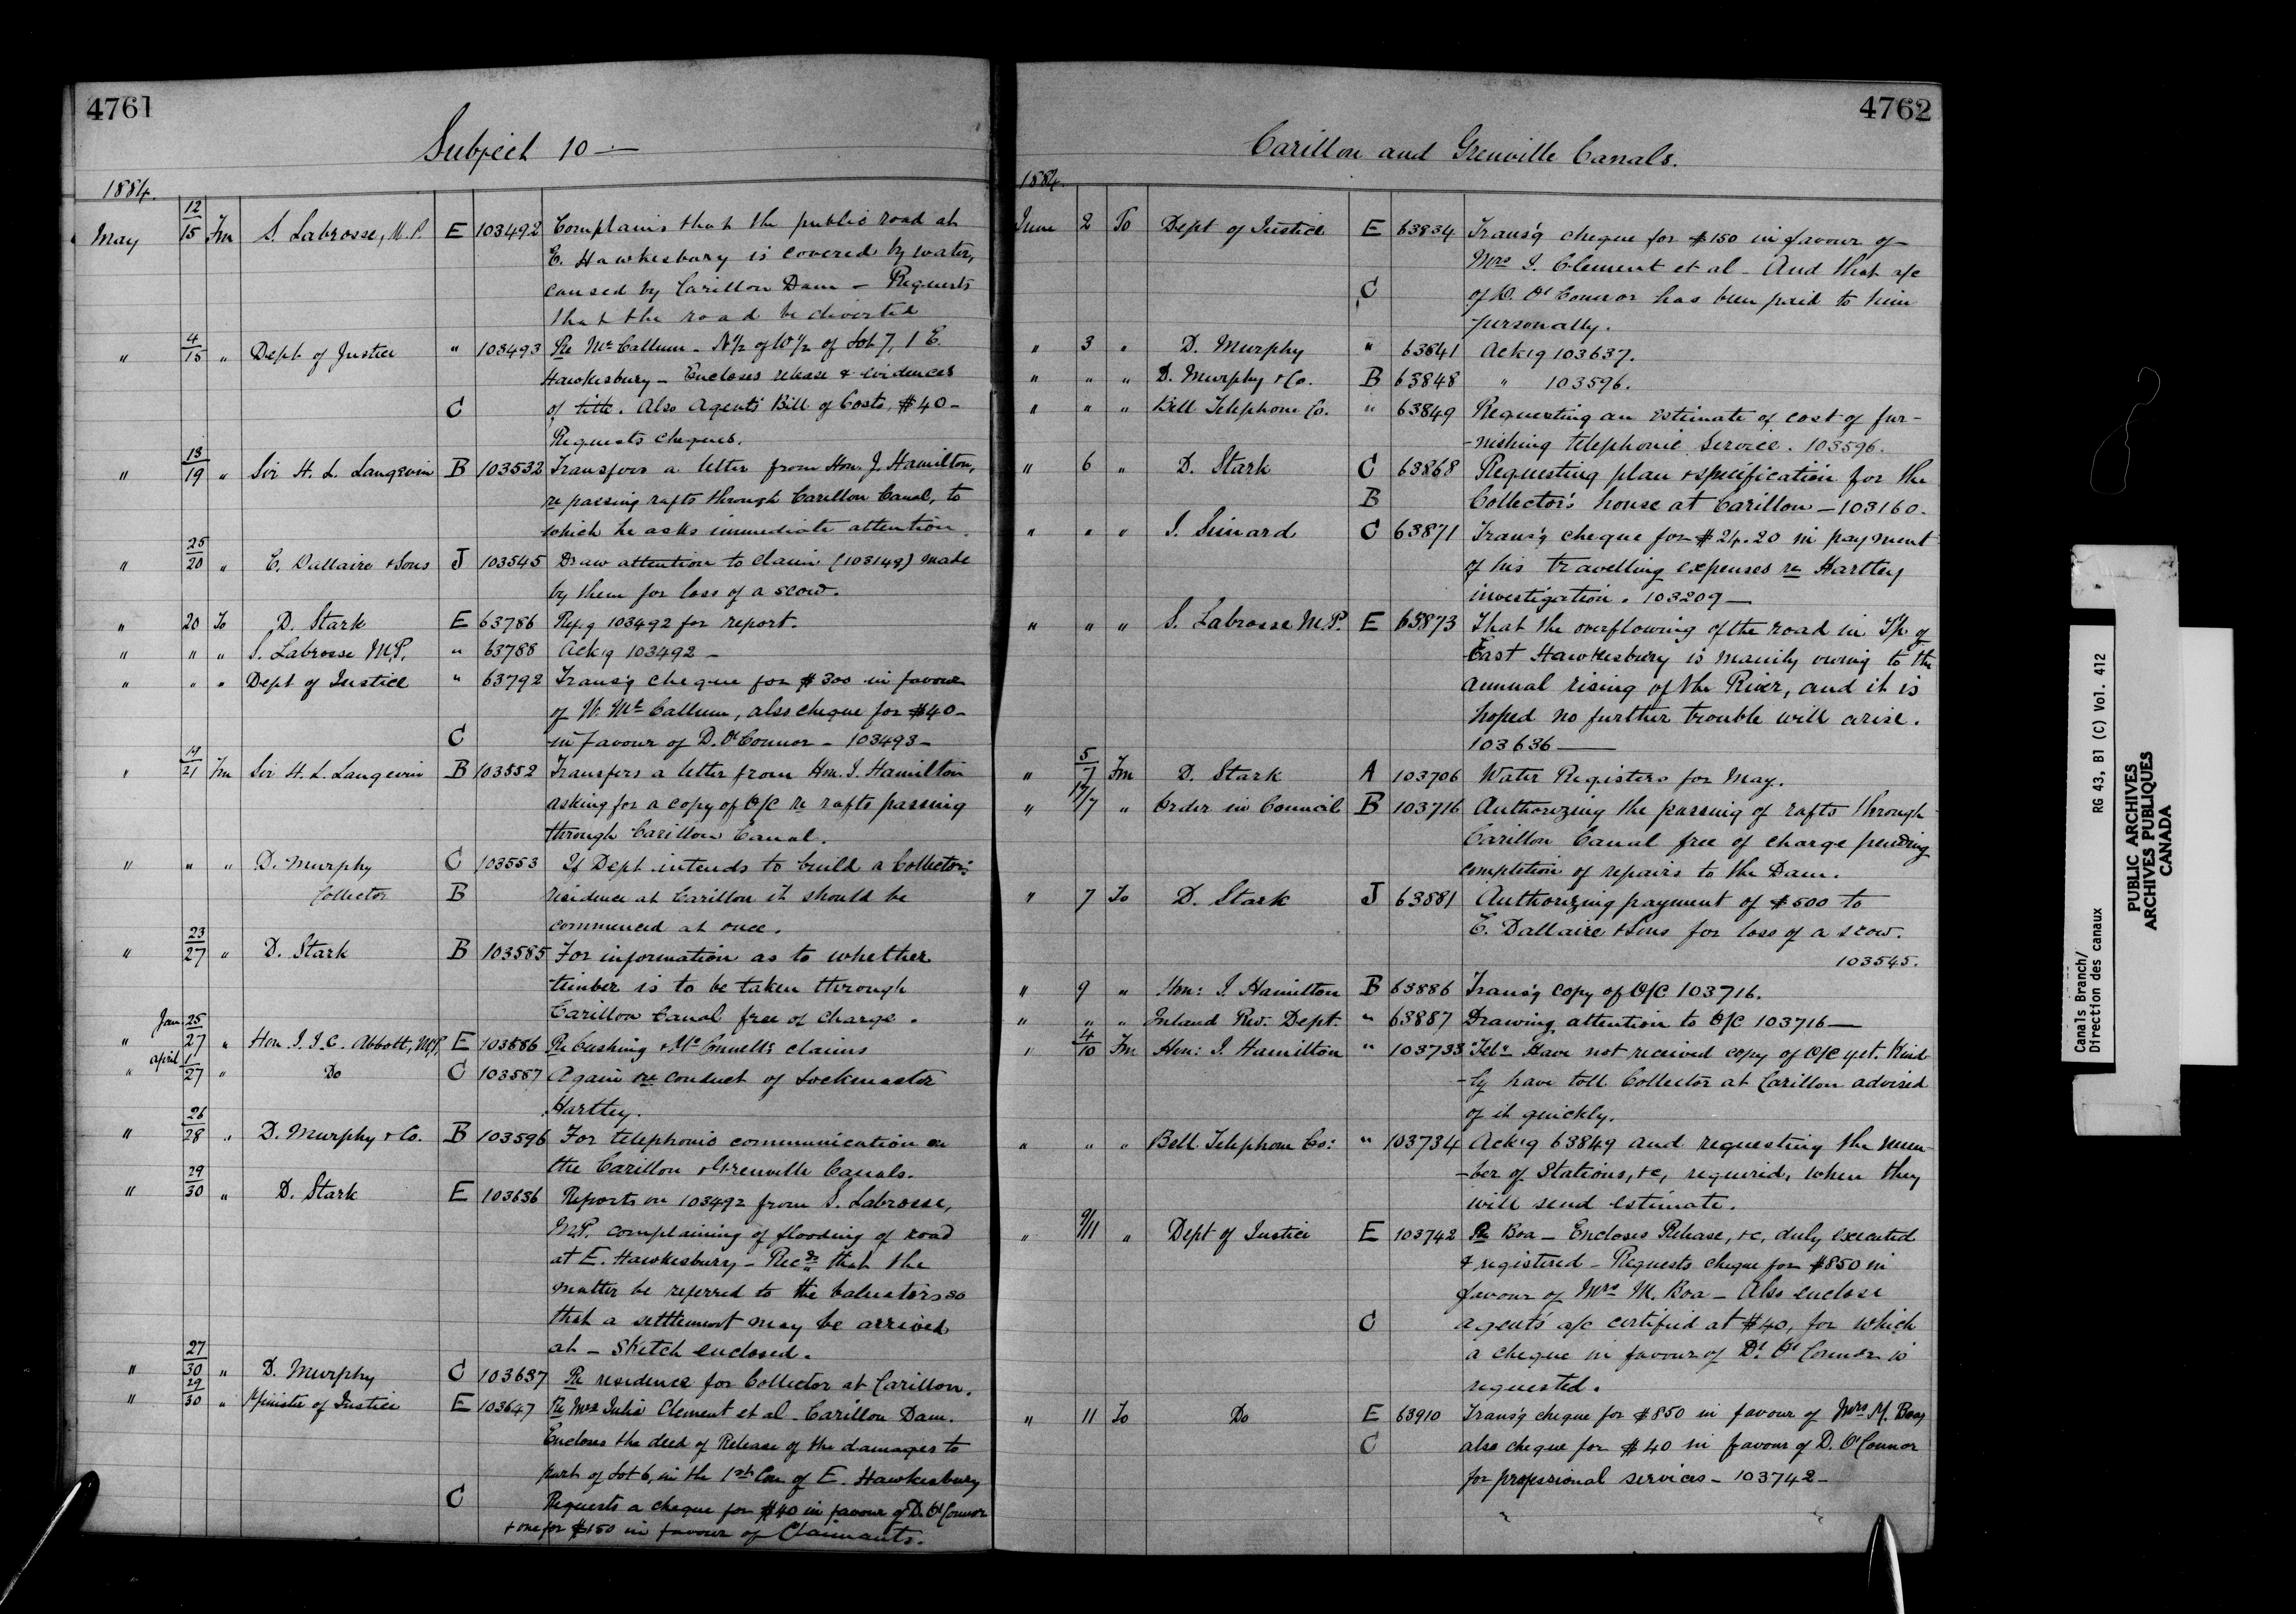 4761
Subject 10 —
1884.
May 12/15 Fm S. Labrosse, M.P. E 103492 Complains that the public road at
E. Hawkesbury is covered by water,
caused by Carillon Dam — Requests
that the road be diverted
" 4/15 " Dept of Justice " 103493 Re McCallum — N½ of W½ of Lot 7, 1 E.
Hawkesbury — Encloses release & evidences
C of title. Also Agents' Bill of Costs, $40 —
Requests cheques.
" 13/19 " Sir H. L. Langevin B 103532 Transfers a letter from Hon. J. Hamilton,
re passing rafts through Carillon Canal, to
which he asks immediate attention.
" 25/20 " E. Dallaire & Sons J 103545 Draw attention to claim (103149) made
by them for loss of a scow.
" 20 To D. Stark E 63786 Refg 103492 for report.
" " " S. Labrosse M.P. " 63788 Ackg 103492 —
" " " Dept of Justice " 63792 Transg cheque for $300 in favour
of W. McCallum, also cheque for $40 —
C in favour of D. O'Connor — 103493 —
" 19/21 Fm Sir H. L. Langevin B 103552 Transfers a letter from Hon. J. Hamilton
asking for a copy of O/C re rafts passing
through Carillon Canal.
" " " D. Murphy C 103553 If Dept intends to build a Collector's
Collector B residence at Carillon it should be
commenced at once.
" 23/27 " D. Stark B 103585 For information as to whether
timber is to be taken through
Carillon Canal free of charge.
" Jan. 25/27 " Hon J. J. C. Abbott, M.P. E 103586 Re Cushing & McConnell's claims
" April 1/27 " Do C 103587 Again re conduct of Lockmaster
Hartley.
" 26/28 " D. Murphy & Co. B 103596 For telephonic communication on
the Carillon & Grenville Canals.
" 29/30 " D. Stark E 103636 Reports on 103492 from S. Labrosse,
M.P. complaining of flooding of road
at E. Hawkesbury — Recds that the
matter be referred to the Valuators so
that a settlement may be arrived
at — Sketch enclosed.
" 27/30 " D. Murphy C 103637 Re residence for Collector at Carillon.
" 29/30 " Minister of Justice E 103647 Re Mrs Julia Clement et al — Carillon Dam.
Encloses the deed of Release of the damages to
part of Lot 6, in the 1st Con of E. Hawkesbury
C Requests a cheque for $40 in favour of D. O'Connor
& one for $150 in favour of Claimants.
4762
Carillon and Grenville Canals.
1884.
June 2 To Dept of Justice E 63834 Transg cheque for $150 in favour of
Mrs J. Clement et al — And that a/c
C of D. O'Connor has been paid to him
personally.
" 3 " D. Murphy " 63841 Ackg 103637.
" " " D. Murphy & Co. B 63848 " 103596.
" " " Bell Telephone Co. " 63849 Requesting an estimate of cost of fur-
-nishing telephone service. 103596.
" 6 " D. Stark C 63868 Requesting plan & specification for the
B Collector's house at Carillon — 103160.
" " " J. Simard C 63871 Transg cheque for $24.20 in payment
of his travelling expenses re Hartley
investigation. 103209 —
" " " S. Labrosse M.P. E 63873 That the overflowing of the road in Tp. of
East Hawkesbury is mainly owing to the
annual rising of the River, and it is
hoped no further trouble will arise.
103636 —
" 5/7 Fm D. Stark A 103706 Water Registers for May.
" 17/7 " Order in Council B 103716 Authorizing the passing of rafts through
Carillon Canal free of charge pending
completion of repairs to the Dam.
" 7 To D. Stark J 63881 Authorizing payment of $500 to
E. Dallaire & Sons for loss of a scow.
103545.
" 9 " Hon: J. Hamilton B 63886 Transg copy of O/C 103716.
" " " Inland Rev. Dept. " 63887 Drawing attention to O/C 103716 —
" 4/10 Fm Hon: J. Hamilton " 103733 Telr Have not received copy of O/C yet. Kind-
-ly have toll Collector at Carillon advised
of it quickly.
" " " Bell Telephone Co: " 103734 Ackg 63849 and requesting the num-
-ber of Stations, &c, required, when they
will send estimate.
" 9/11 " Dept of Justice E 103742 Re Boa — Encloses Release, &c, duly executed
& registered — Requests cheque for $850 in
favour of Mrs M. Boa — Also enclose
C agent's a/c certified at $40, for which
a cheque in favour of D. O'Connor is
requested.
" 11 To Do E 63910 Transg cheque for $850 in favour of Mrs M. Boa,
C also cheque for $40 in favour of D. O'Connor
for professional services — 103742 —
Canals Branch/
Direction des canaux RG 43, B1 (C) Vol. 412
PUBLIC ARCHIVES
ARCHIVES PUBLIQUES
CANADA